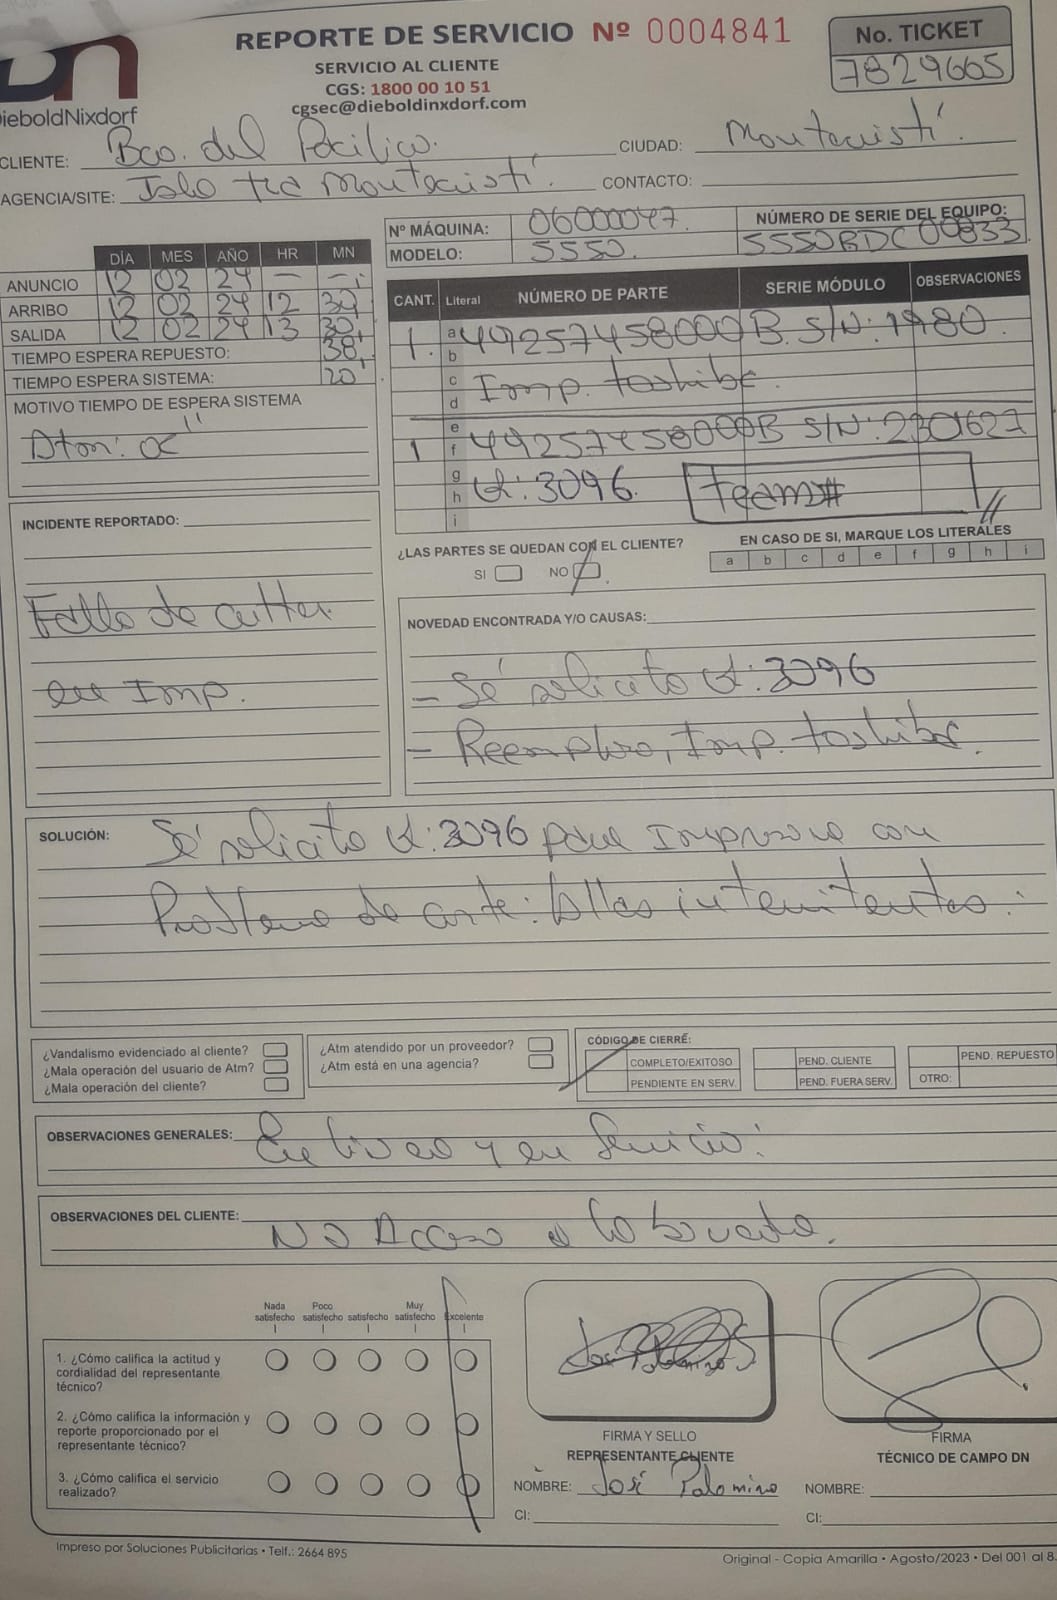 REPORTE DE SERVICIO Nº 0004841
No. TICKET
7829665
SERVICIO AL CLIENTE
CGS: 1800 00 10 51
cgsec@dieboldinxdorf.com
DieboldNixdorf
CLIENTE: Bco. del Pacifico.
CIUDAD: Montecristi.
AGENCIA/SITE: Isla tia Montecristi.
CONTACTO:
Nº MÁQUINA: 06000047.
NÚMERO DE SERIE DEL EQUIPO:
MODELO: 5550.
5550BDC00833
DÍA MES AÑO HR MN
ANUNCIO 12 02 24 — —
ARRIBO 12 02 24 12 30
SALIDA 12 02 24 13 30
TIEMPO ESPERA REPUESTO: 30
TIEMPO ESPERA SISTEMA: 20'
MOTIVO TIEMPO DE ESPERA SISTEMA
CANT. Literal NÚMERO DE PARTE SERIE MÓDULO OBSERVACIONES
1. 49257458000B. S/N: 1980.
Imp. toshiba.
1 49257458000B S/N: 2301627
3096. Team#
a
b
c
d
e
f
g
h
i
INCIDENTE REPORTADO:
Fallo de cutter
en Imp.
¿LAS PARTES SE QUEDAN CON EL CLIENTE?
SI NO
EN CASO DE SI, MARQUE LOS LITERALES
a b c d e f g h i
NOVEDAD ENCONTRADA Y/O CAUSAS:
- Sé solicito 3096
- Reemplazo, Imp. toshiba.
SOLUCIÓN: Sé solicito 3096 para Impresora con
Problema de corte: fallas intemitentes.
¿Vandalismo evidenciado al cliente?
¿Mala operación del usuario de Atm?
¿Mala operación del cliente?
¿Atm atendido por un proveedor?
¿Atm está en una agencia?
CÓDIGO DE CIERRE:
COMPLETO/EXITOSO
PENDIENTE EN SERV.
PEND. CLIENTE
PEND. FUERA SERV.
PEND. REPUESTO
OTRO:
OBSERVACIONES GENERALES: En linea y en Servicio.
OBSERVACIONES DEL CLIENTE:
No Acceso a la boveda.
Nada satisfecho
Poco satisfecho
satisfecho
Muy satisfecho
Excelente
1. ¿Cómo califica la actitud y
cordialidad del representante
técnico?
2. ¿Cómo califica la información y
reporte proporcionado por el
representante técnico?
3. ¿Cómo califica el servicio
realizado?
José Palomino
FIRMA Y SELLO
REPRESENTANTE CLIENTE
NOMBRE: José Palomino
CI:
FIRMA
TÉCNICO DE CAMPO DN
NOMBRE:
CI:
Impreso por Soluciones Publicitarias • Telf.: 2664 895
Original - Copia Amarilla • Agosto/2023 • Del 001 al 8.